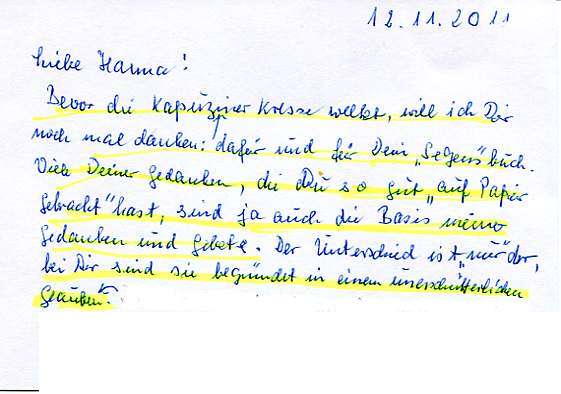 12.11.2011
Liebe Hanna!
Bevor die Kapuzinerkresse welkt, will ich Dir
noch mal danken: dafür und für Dein „Segens“buch.
Viele Deiner Gedanken, die Du so gut „auf Papier
gebracht“ hast, sind ja auch die Basis meiner
Gedanken und Gebete. Der Unterschied ist „nur“ der,
bei Dir sind sie begründet in einem unerschütterlichen
Glauben.